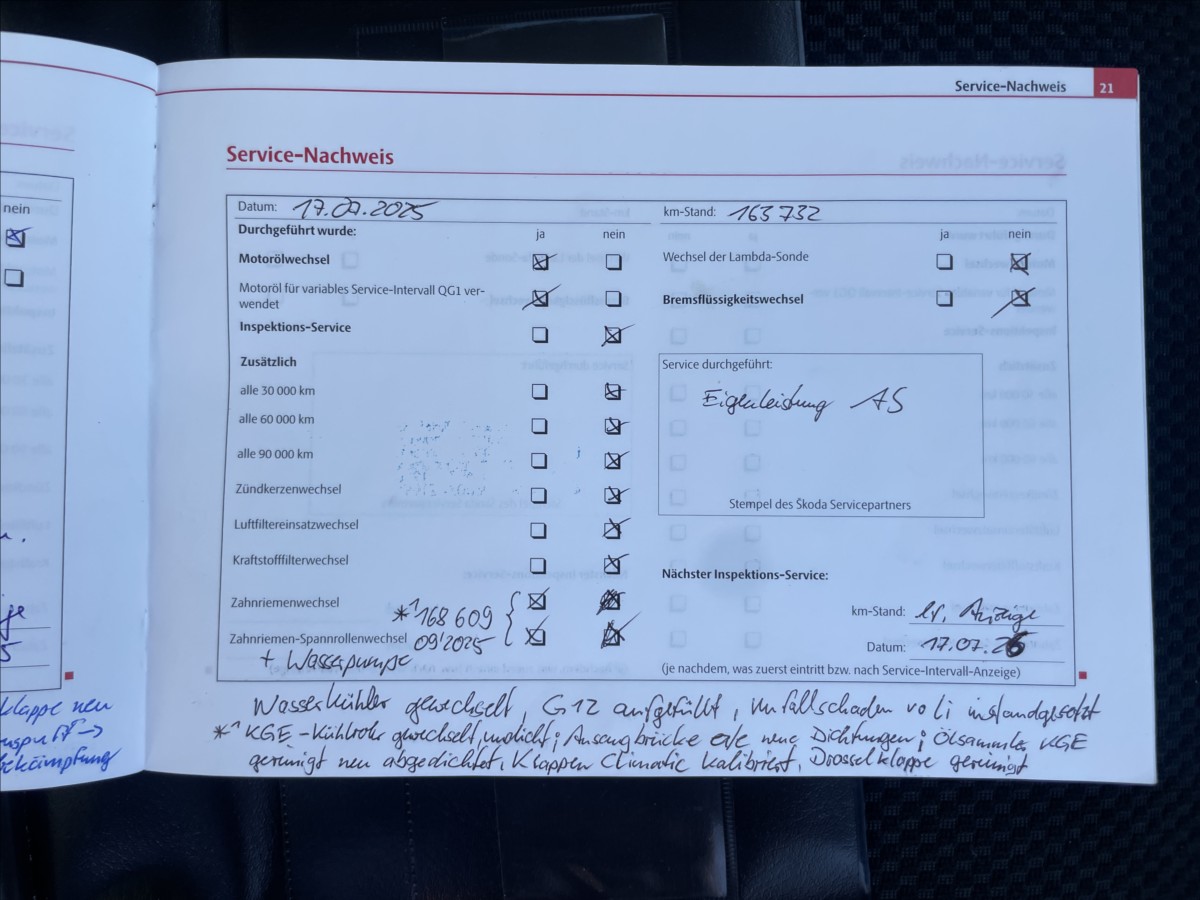 Service-Nachweis 21
Service-Nachweis
nein
Datum: 17.07.2025
km-Stand: 163 732
Durchgeführt wurde:
ja nein
ja nein
Motorölwechsel
Motoröl für variables Service-Intervall QG1 ver-
wendet
Inspektions-Service
Zusätzlich
alle 30 000 km
alle 60 000 km
alle 90 000 km
Zündkerzenwechsel
Luftfiltereinsatzwechsel
Kraftstofffilterwechsel
Zahnriemenwechsel
*1 168 609
Zahnriemen-Spannrollenwechsel 09'2025
+ Wasserpumpe
Wechsel der Lambda-Sonde
Bremsflüssigkeitswechsel
Service durchgeführt:
Eigenleistung AS
Stempel des Škoda Servicepartners
Nächster Inspektions-Service:
km-Stand: lt. Anzeige
Datum: 17.07.26
(je nachdem, was zuerst eintritt bzw. nach Service-Intervall-Anzeige)
Wasserkühler gewechselt, G12 aufgefüllt, Unfallschaden vo li instandgesetzt
*1 KGE-Kühlrohr gewechselt, undicht; Ansaugbrücke neue Dichtungen; Ölsammler KGE
gereinigt neu abgedichtet, Klappen Climatic kalibriert, Drosselklappe gereinigt
klappe neu